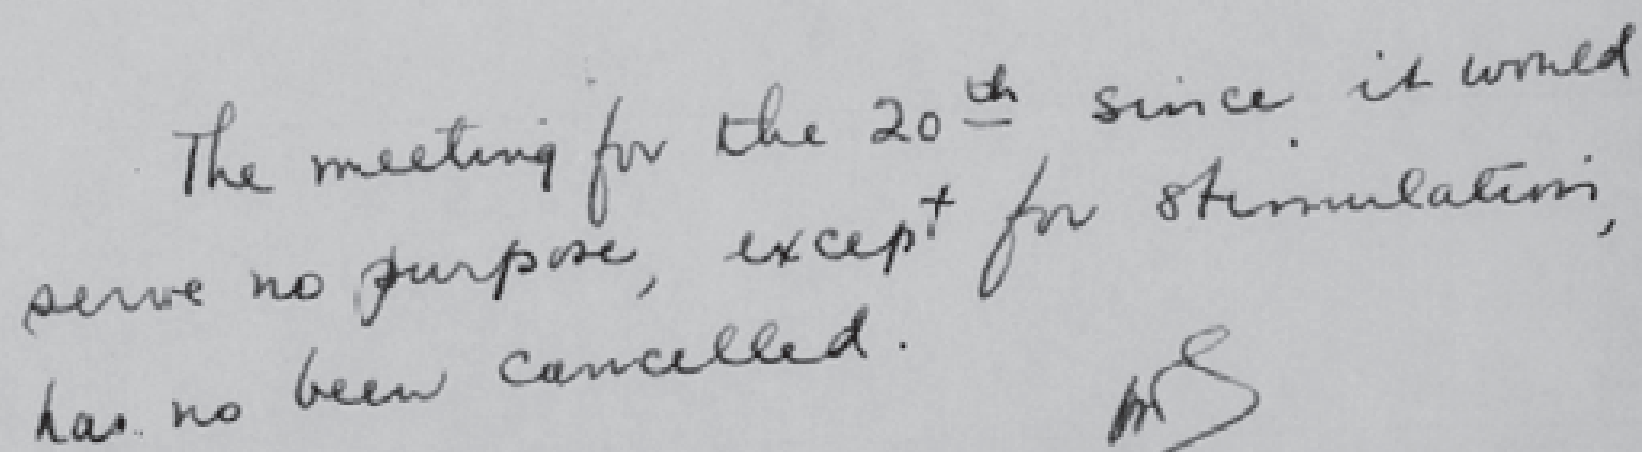 The meeting for the 20th since it would
serve no purpose, except for stimulation,
has no been cancelled.